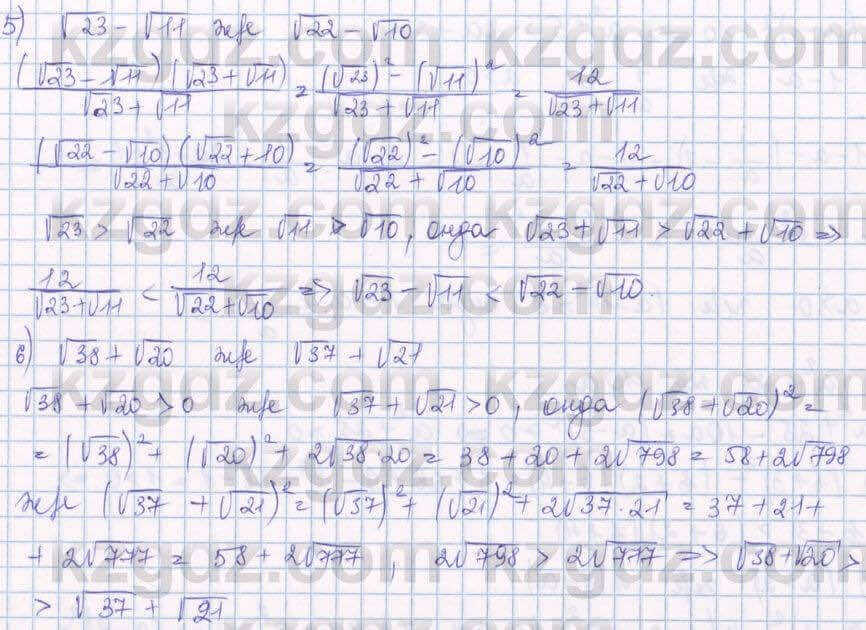 5) √23 - √11 және √22 - √10
(√23 - √11)(√23 + √11) / (√23 + √11) = ((√23)² - (√11)²) / (√23 + √11) = 12 / (√23 + √11)
(√22 - √10)(√22 + 10) / (√22 + √10) = ((√22)² - (√10)²) / (√22 + √10) = 12 / (√22 + √10)
√23 > √22 және √11 > √10, онда √23 + √11 > √22 + √10 =>
12 / (√23 + √11) < 12 / (√22 + √10) => √23 - √11 < √22 - √10.
6) √38 + √20 және √37 + √21
√38 + √20 > 0 және √37 + √21 > 0, онда (√38 + √20)² =
= (√38)² + (√20)² + 2√38·20 = 38 + 20 + 2√798 = 58 + 2√798
және (√37 + √21)² = (√37)² + (√21)² + 2√37·21 = 37 + 21 +
+ 2√777 = 58 + 2√777, 2√798 > 2√777 => √38 + √20 >
> √37 + √21